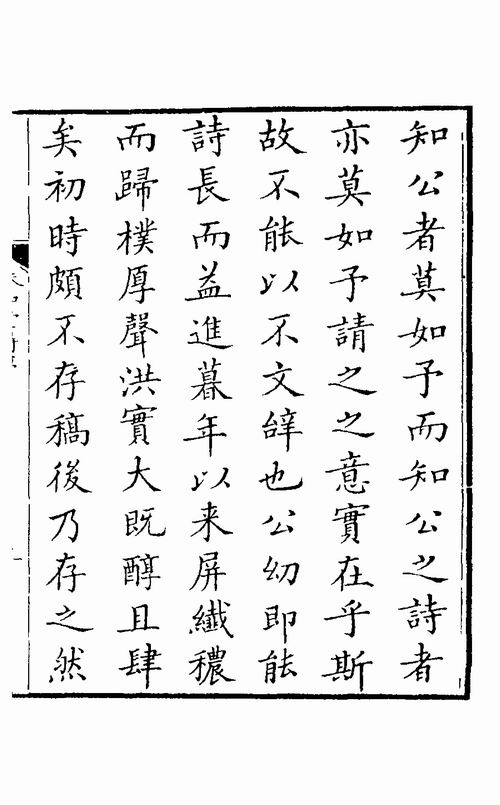 知公者莫如予而知公之詩者
亦莫如予請之之意實在乎斯
故不能以不文辝也公幼即能
詩長而益進暮年以来屏纖穠
而歸樸厚聲洪實大既醇且肆
矣初時頗不存稿後乃存之然